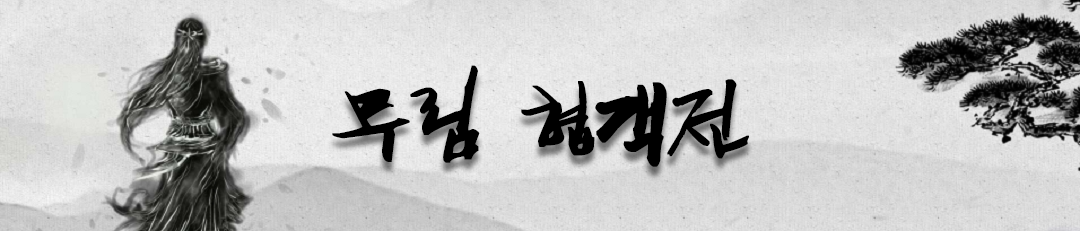 무림 협객전